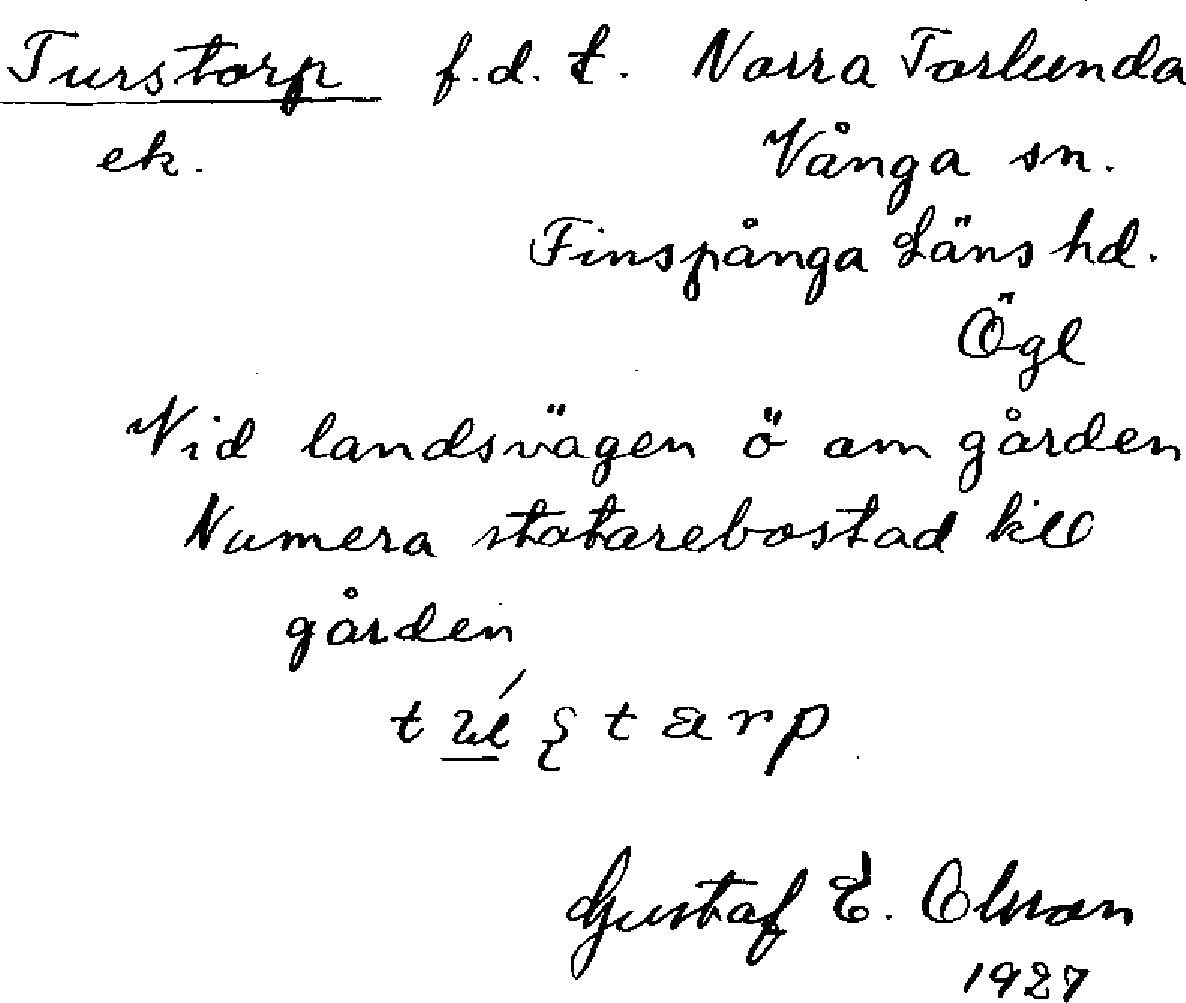 Turstorp f.d. t. Norra Torlunda
ek. Vånga sn.
Finspånga Läns hd.
Ögl
Vid landsvägen ö om gården
Numera statarebostad till
gården
Gustaf E. Olsson
1927